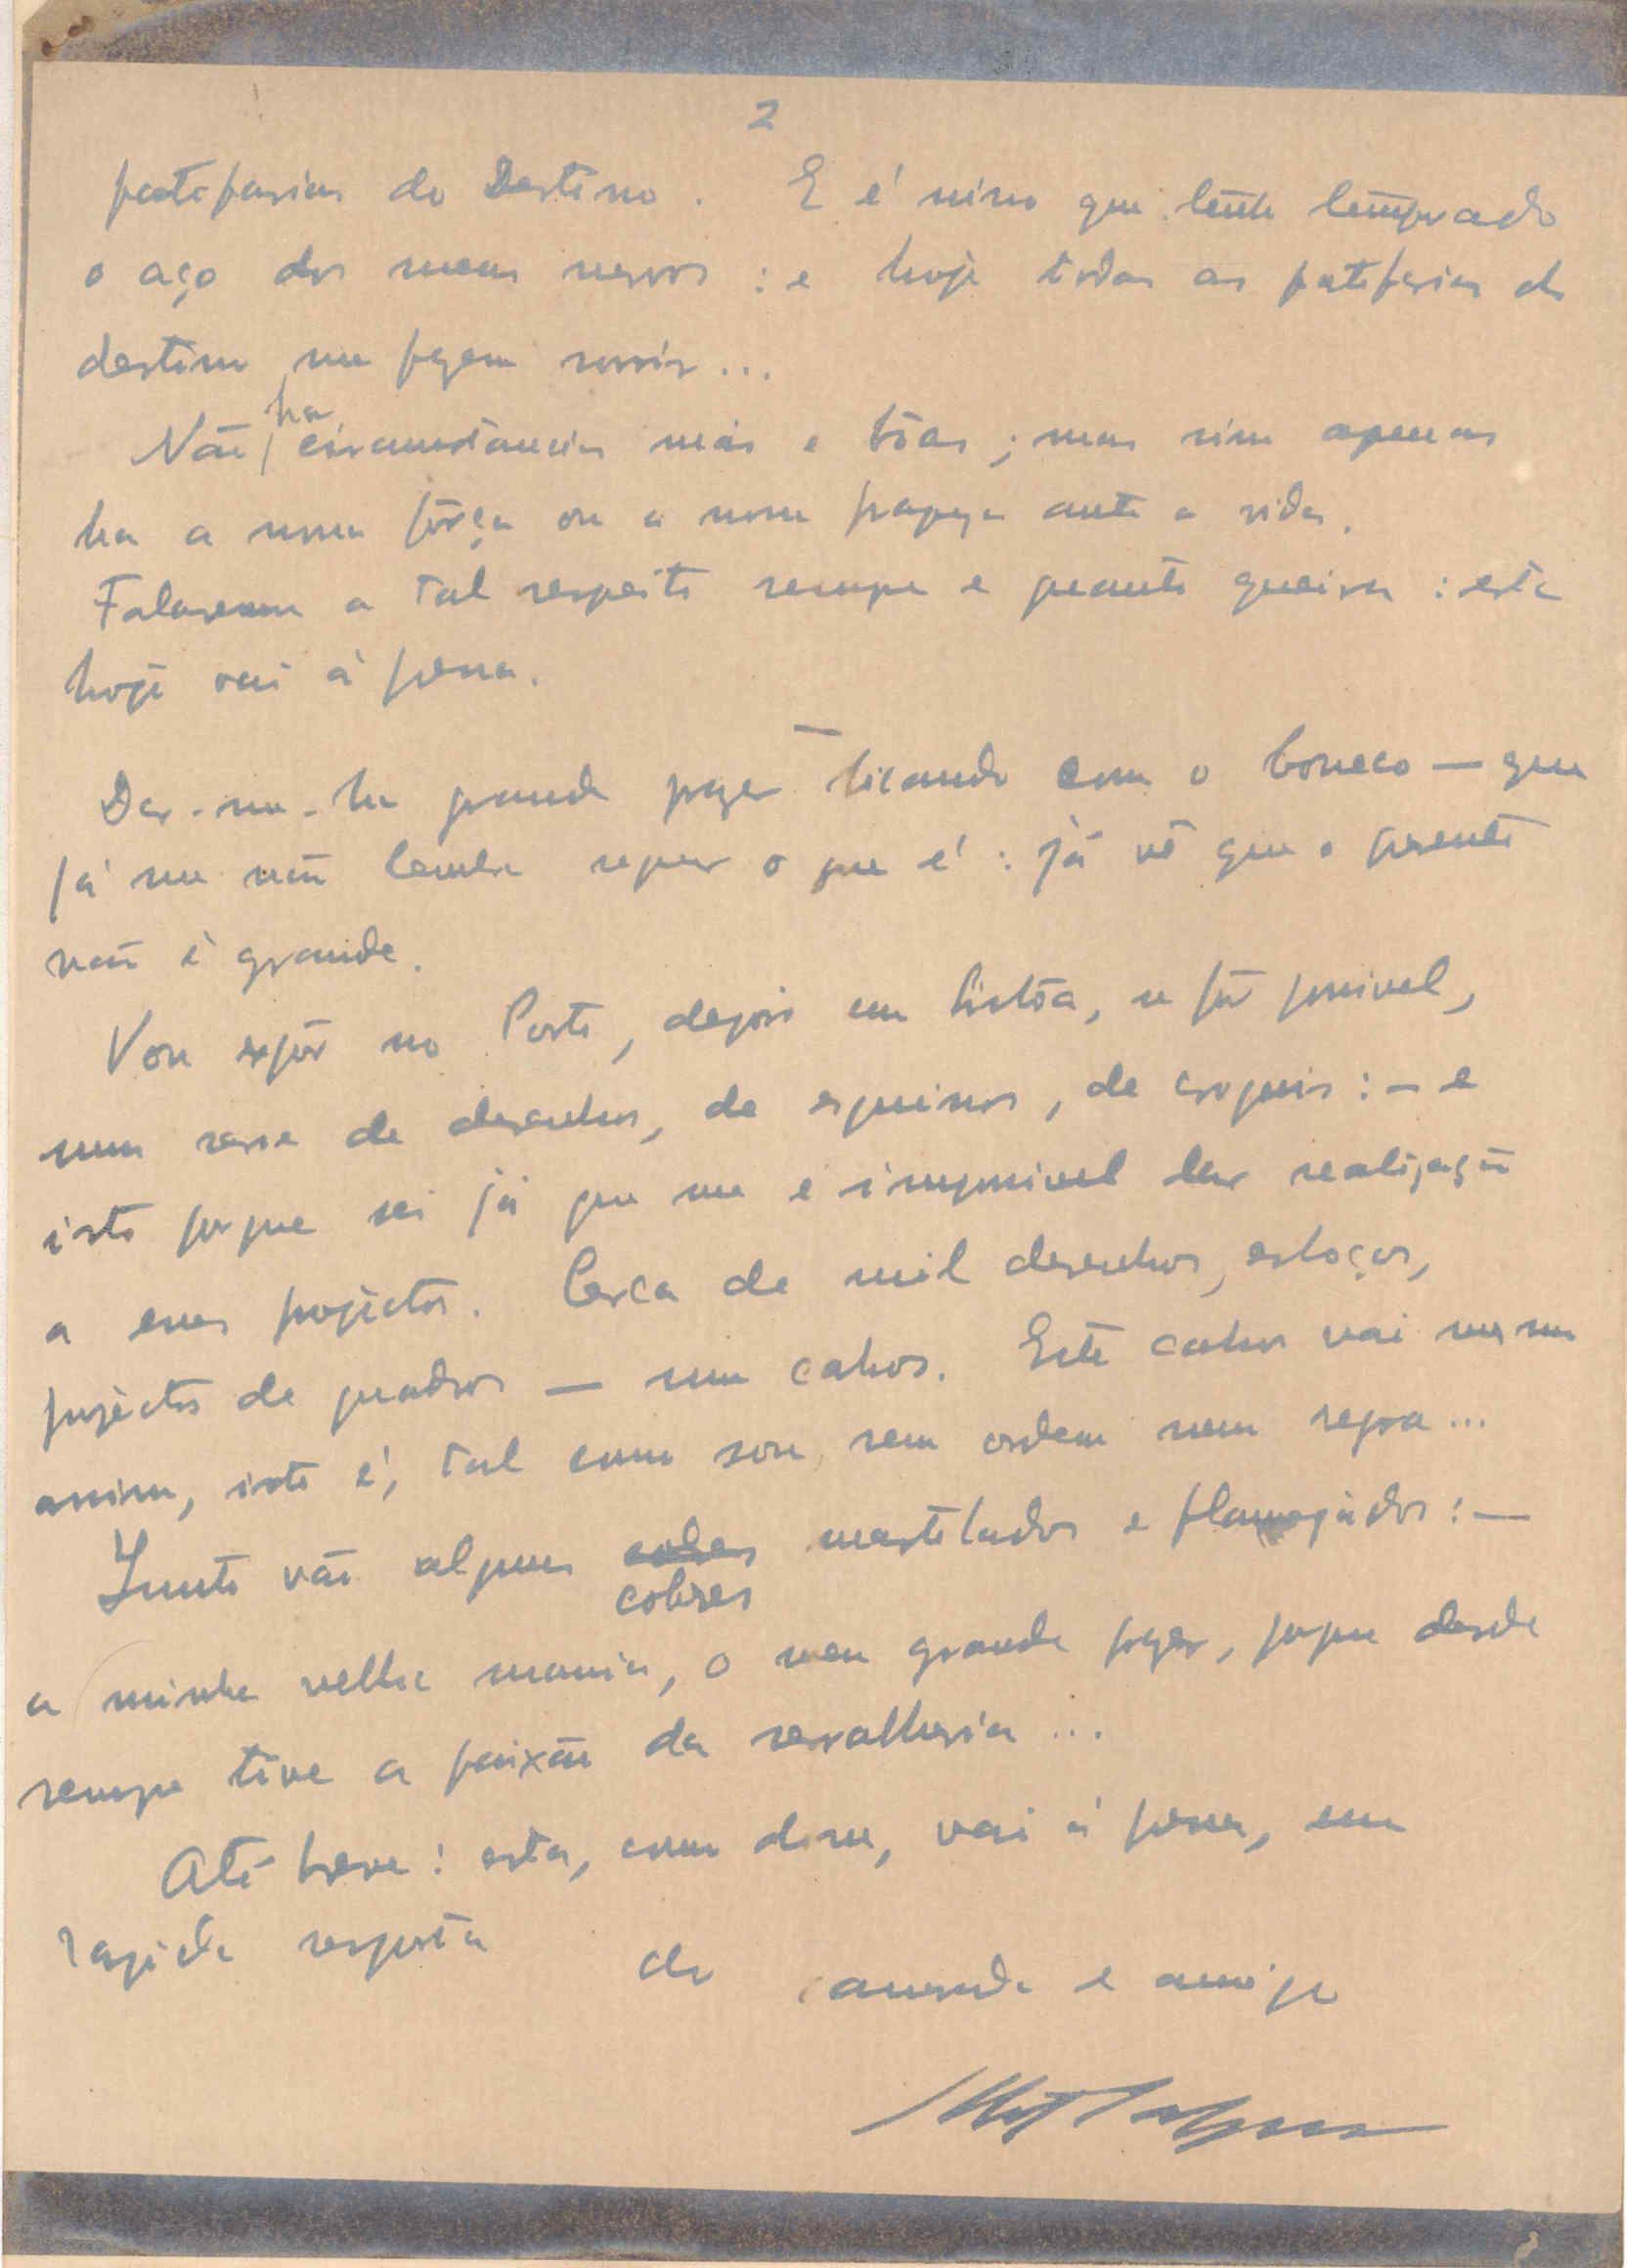 2
patifarias do Destino. E é nisso que tenho temperado
o aço dos meus nervos : e hoje todas as patifarias do
destino me fazem sorrir...
Não ha circumstancias más e bôas ; mas sim apenas
ha a nossa fôrça ou a nossa fraqueza ante a vida.
Falaremos a tal respeito sempre e quanto queira : esta
hoje vai á pressa.
—
Dar-me-ha grande prazer ficando com o boneco — que
já me não lembra sequer o que é : já vê que o presente
não é grande.
Vou expôr no Porto, depois em Lisbôa, se fôr possivel,
uma serie de desenhos, de esquissos, de croquis : — e
isto porque sei já que me é impossivel dar realização
a esses projectos. Cerca de mil desenhos, esboços,
projectos de quadros — um cahos. Este cahos vai mesmo
assim, isto é, tal como sou, sem ordem nem regra...
Junto vão alguns cobres martelados e flamejados : —
cobres
a minha velha mania, o meu grande prazer, porque desde
sempre tive a paixão da serralheria...
Até breve : esta, como disse, vai á pressa, em
rapida resposta do camarada e amigo